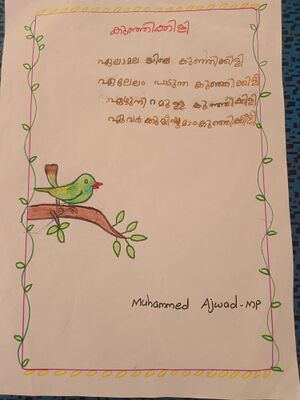 കുഞ്ഞിക്കിളി
ഏലാമല കുഞ്ഞിക്കിളി
ഏലേലം പാടുന്ന കുഞ്ഞിക്കിളി
ഏഴുനിറമുള്ള കുഞ്ഞിക്കിളി
ഏവർക്കുമിഷ്ടമാംകുഞ്ഞിക്കിളി
Muhammed Ajwad-MP